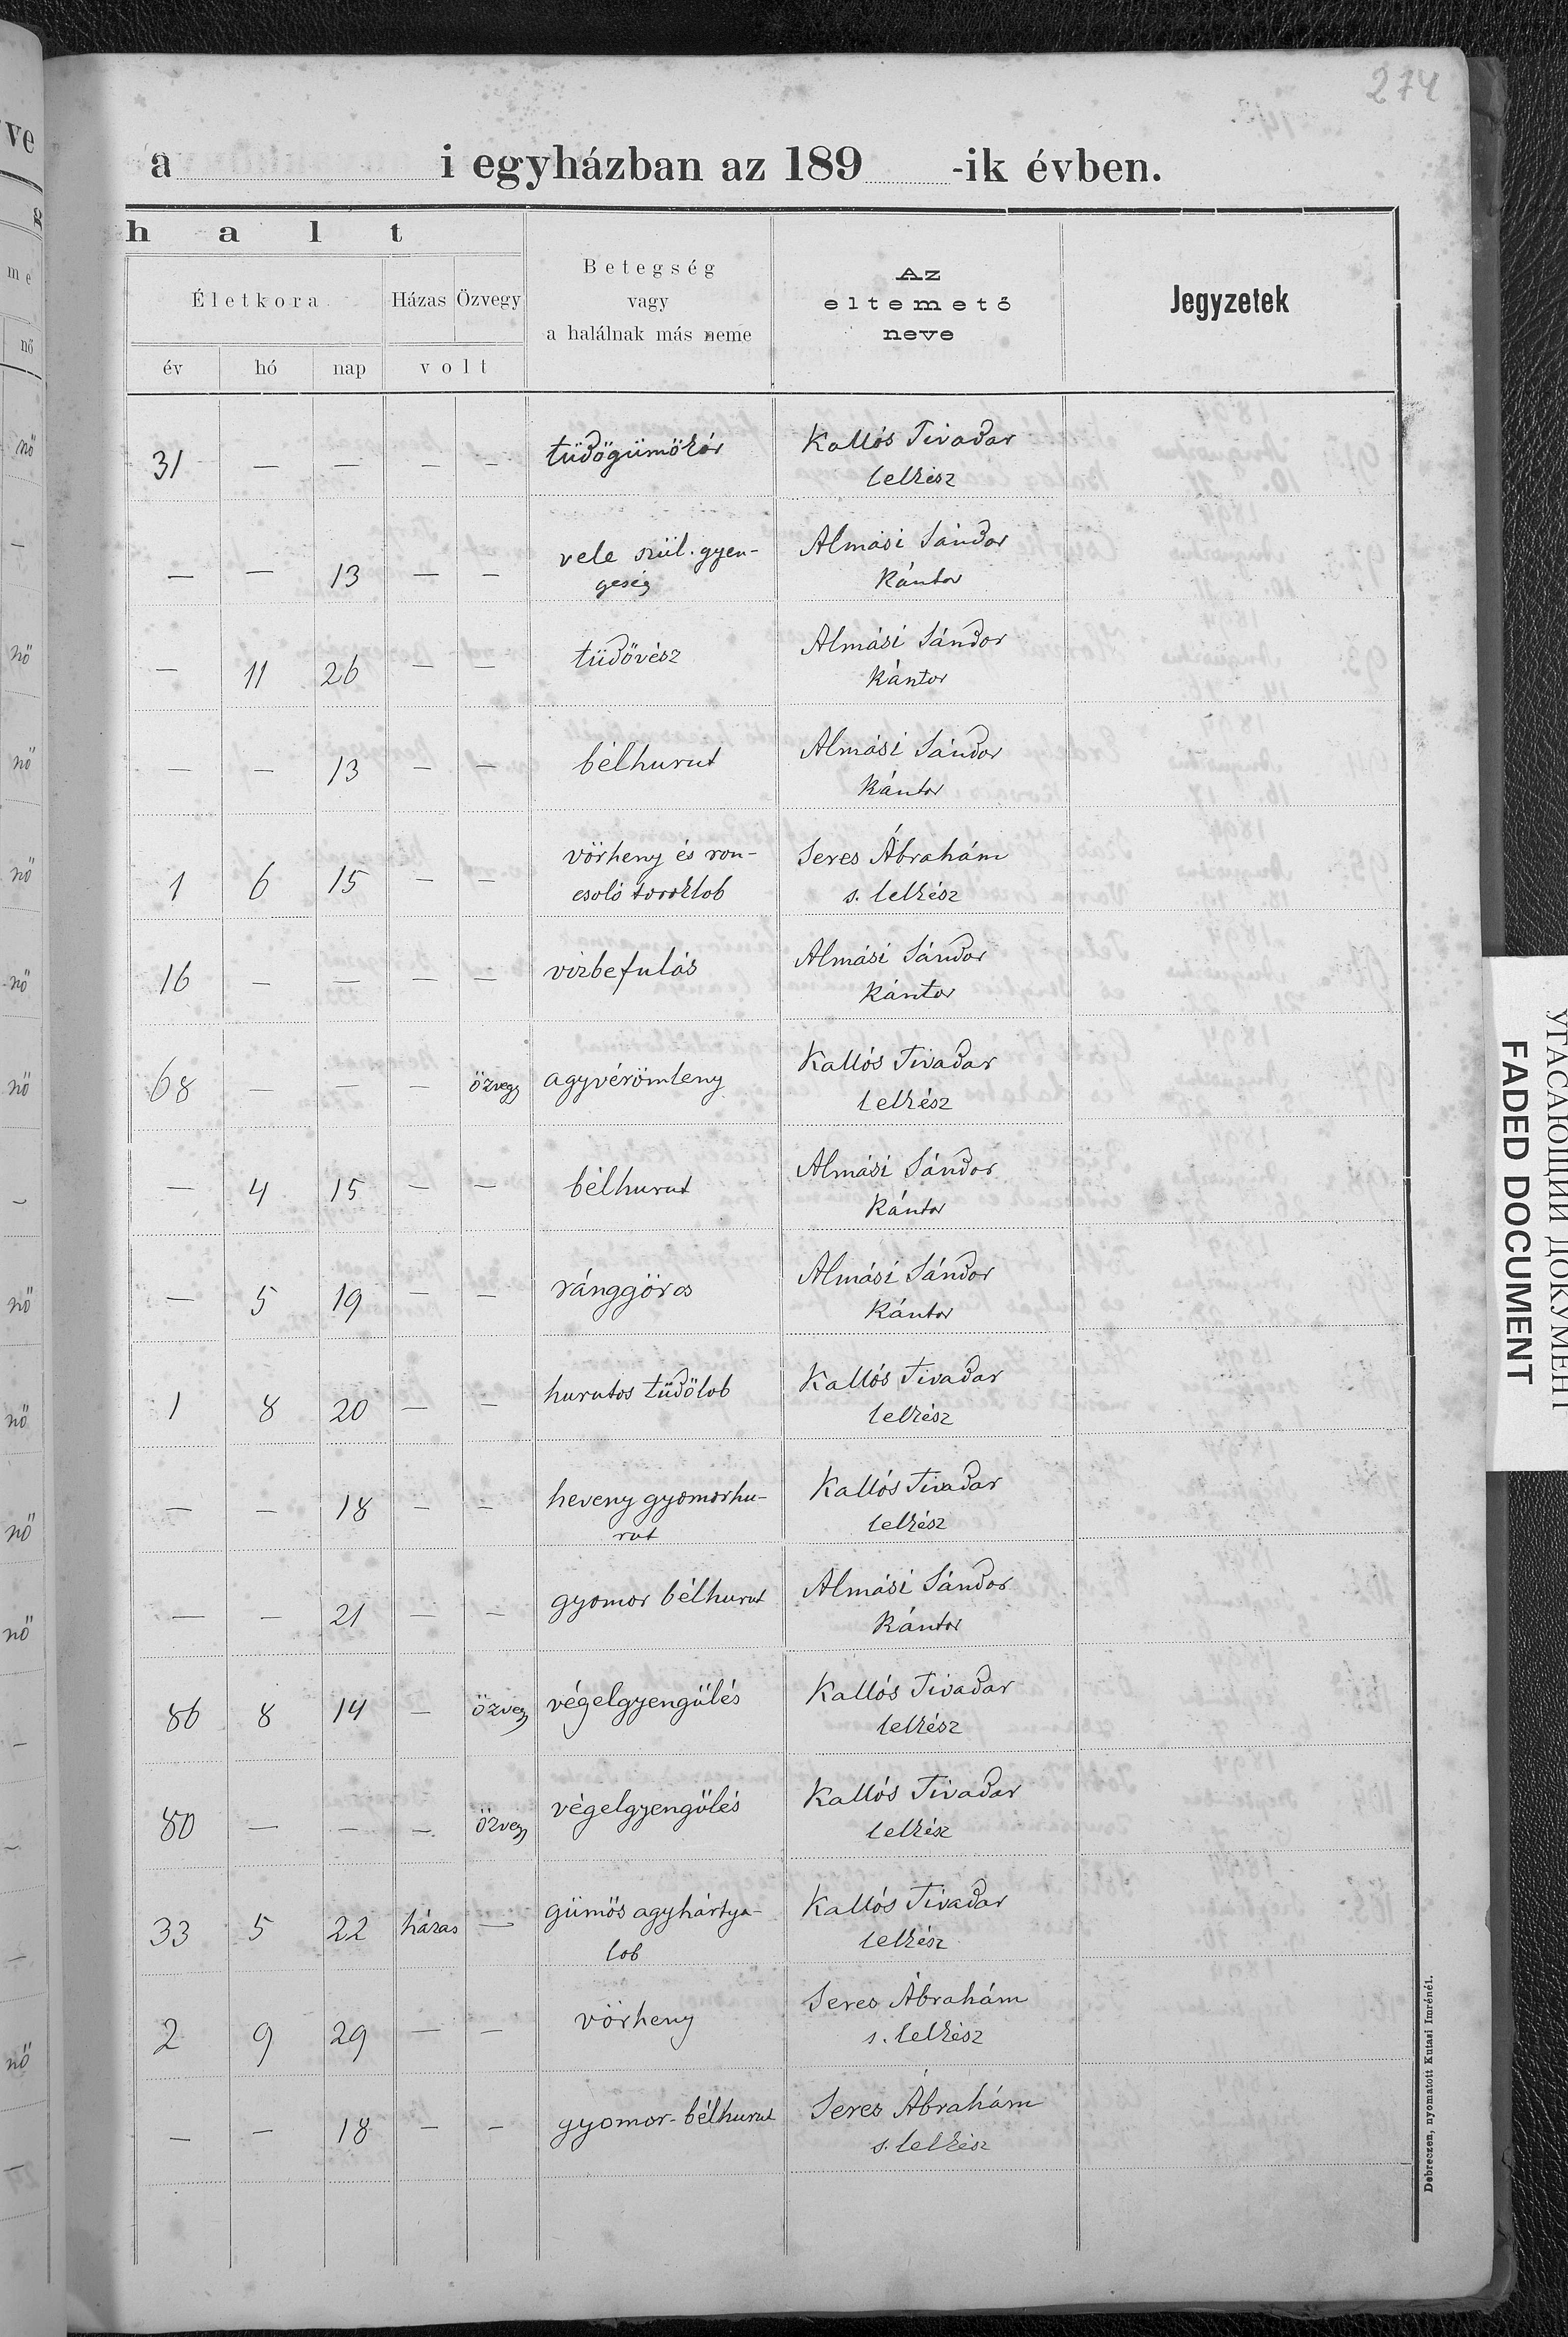 274
a i egyházban az 189 -ik évben.
h a l t
Életkora
Házas Özvegy
Betegség
vagy
a halálnak más neme
Az
eltemető
neve
Jegyzetek
év hó nap volt
31 — — — — tüdőgümőkór Kallós Tivadar
lelkész
— — 13 — — vele szül. gyen-
geség
Almási Sándor
Kántor
— 11 26 — — tüdővész Almási Sándor
Kántor
— — 13 — — bélhurut Almási Sándor
Kántor
1 6 15 — — vörheny és ron-
csoló toroklob
Seres Ábrahám
s. lelkész
16 — — — — vizbefulás Almási Sándor
Kántor
68 — — — özvegy agyvérömleny Kallós Tivadar
lelkész
— 4 15 — — bélhurut Almási Sándor
Kántor
— 5 19 — — ránggörcs Almási Sándor
Kántor
1 8 20 — — hurutos tüdőlob Kallós Tivadar
lelkész
— — 18 — — heveny gyomorhu-
rut
Kallós Tivadar
lelkész
— — 21 — — gyomor bélhurut Almási Sándor
Kántor
86 8 14 — özvegy végelgyengülés Kallós Tivadar
lelkész
80 — — — özvegy végelgyengülés Kallós Tivadar
lelkész
33 5 22 házas — gümős agyhártya-
lob
Kallós Tivadar
lelkész
2 9 29 — — vörheny Seres Ábrahám
s. lelkész
— — 18 — — gyomor-bélhurut Seres Ábrahám
s. lelkész
Debreczen, nyomatott Kutasi Imrénél.
УГАСАЮЩИЙ ДОКУМЕНТ
FADED DOCUMENT
ve
g
me
nő
nő
—
nő
nő
nő
nő
nő
—
nő
nő
nő
nő
—
—
—
nő
—